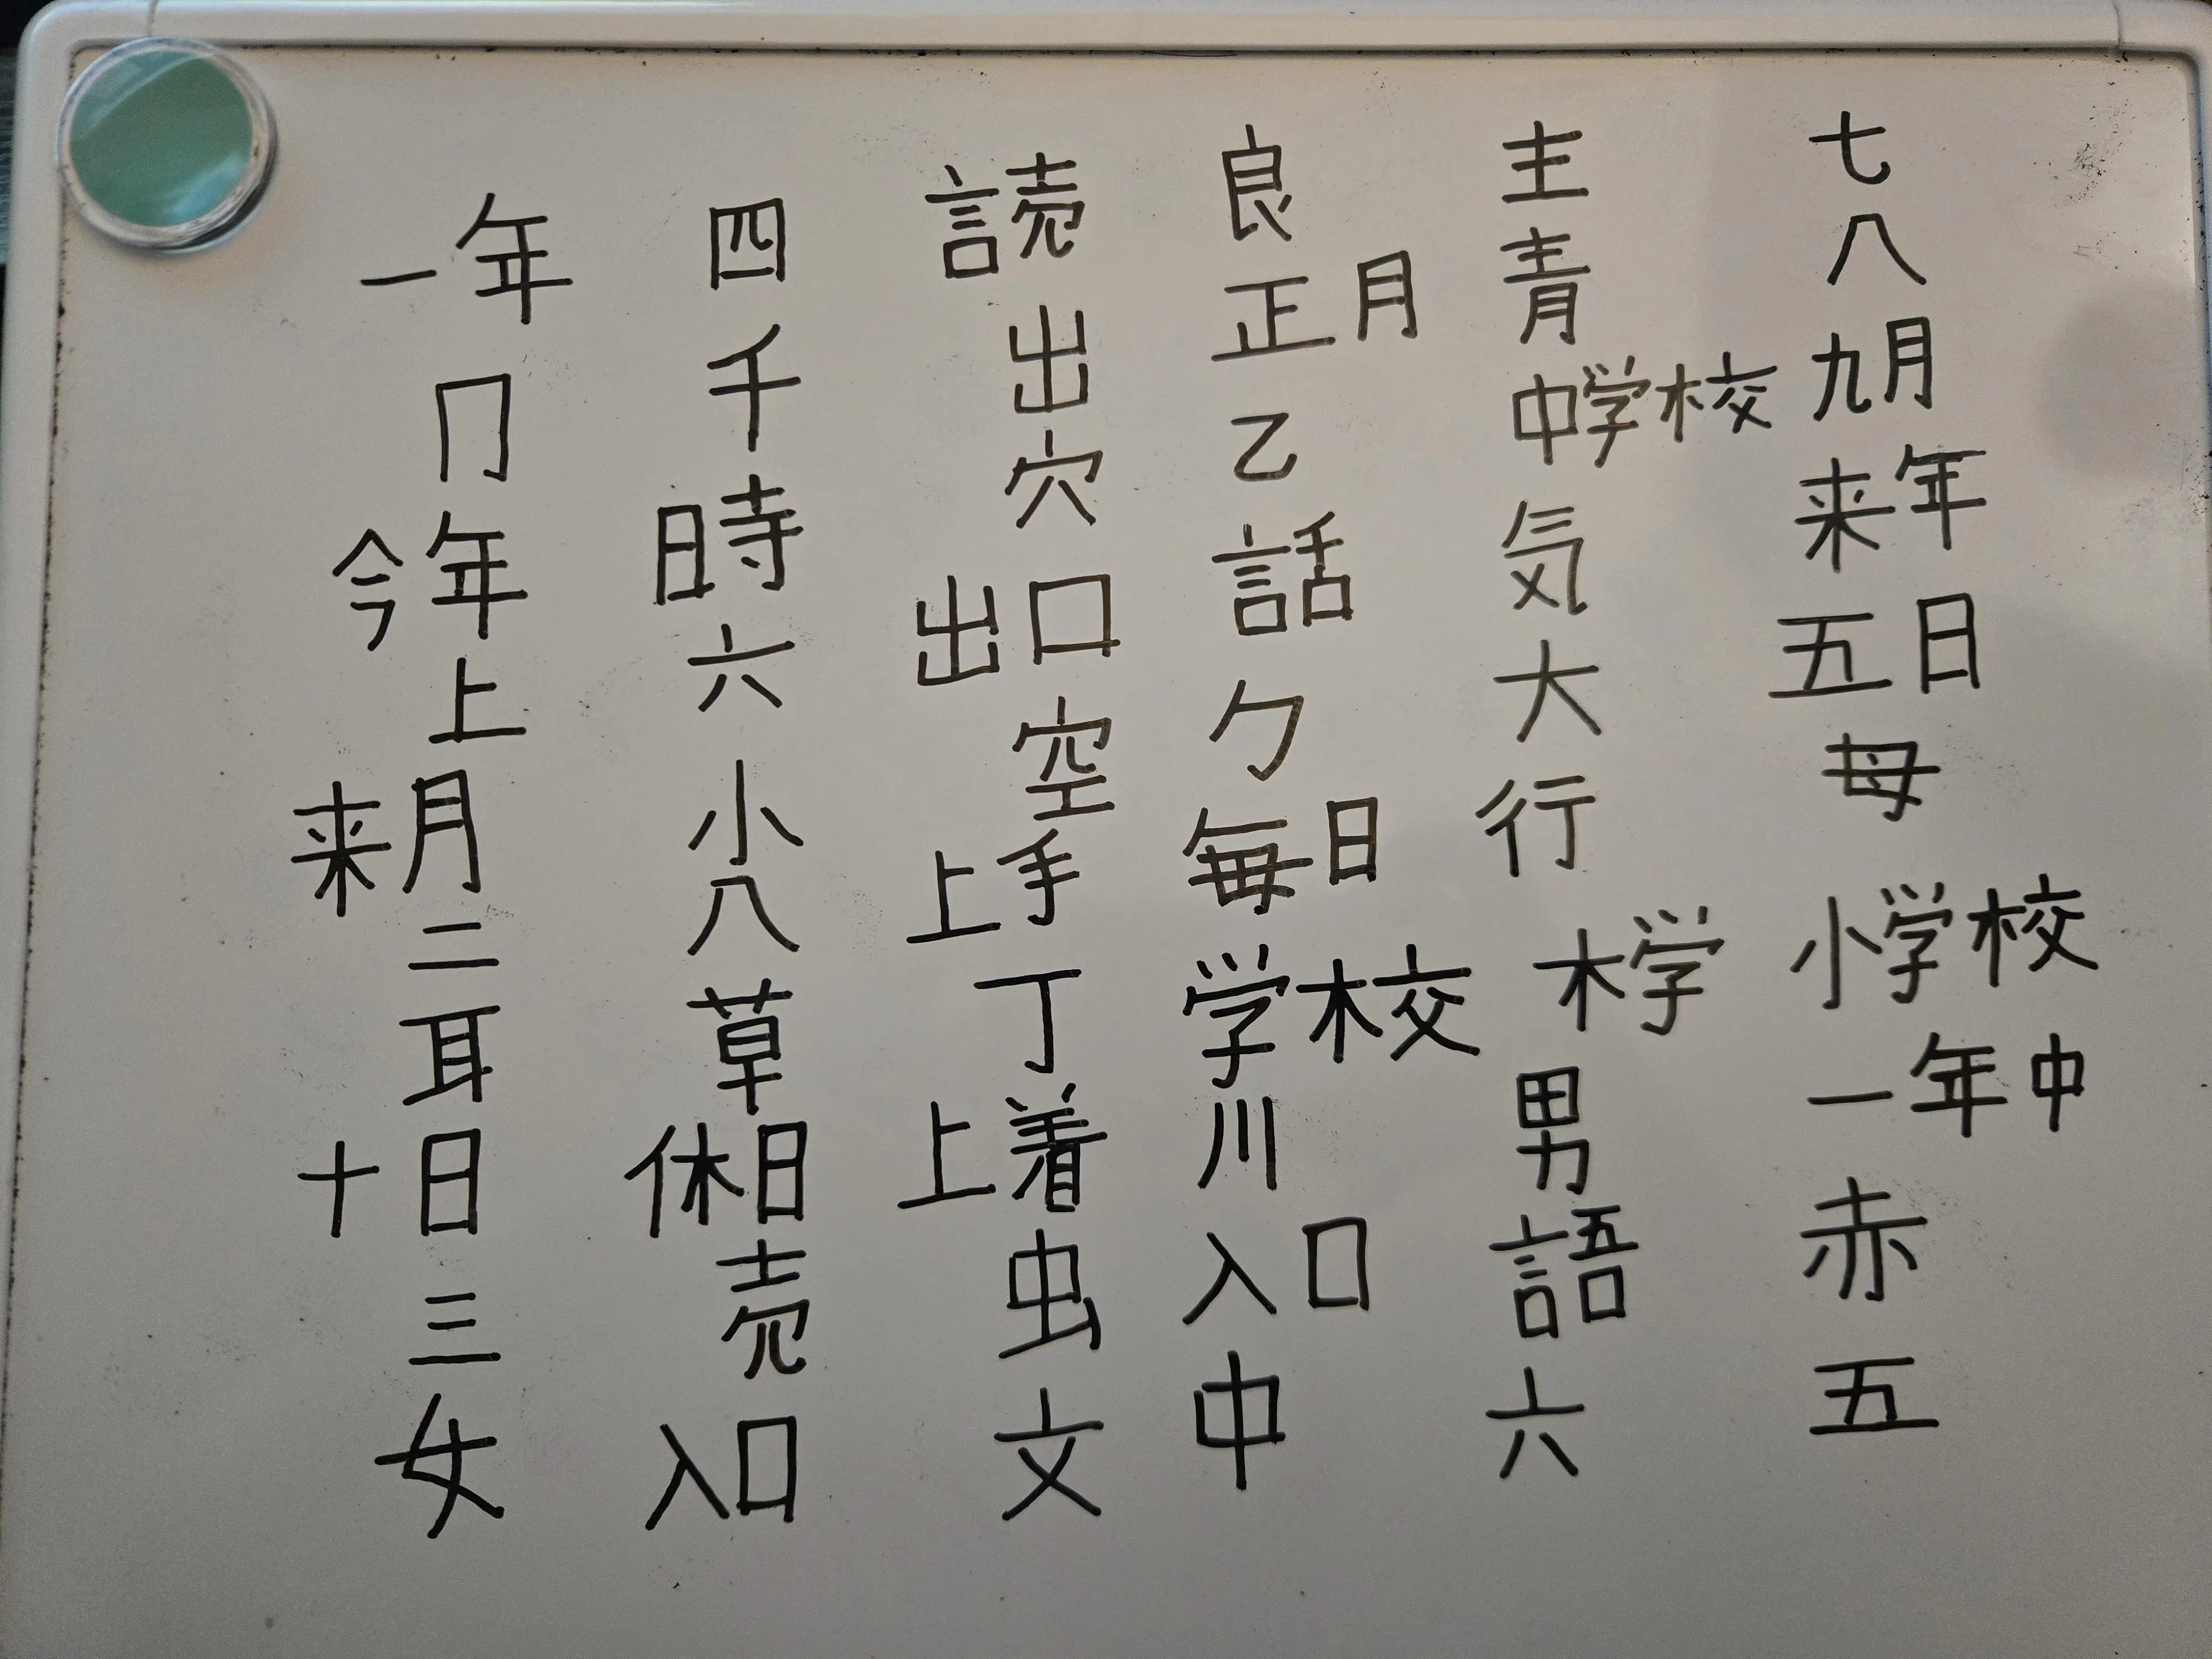 七八九月来年五日母小学校一年中赤五
主青中学校気大行木学男語六
良正月乙話勹毎日学校川入口中
読出穴出口空上手丁上着虫文
四千日時六小八草休日売入口
一年冂今年上来月二耳十日三女